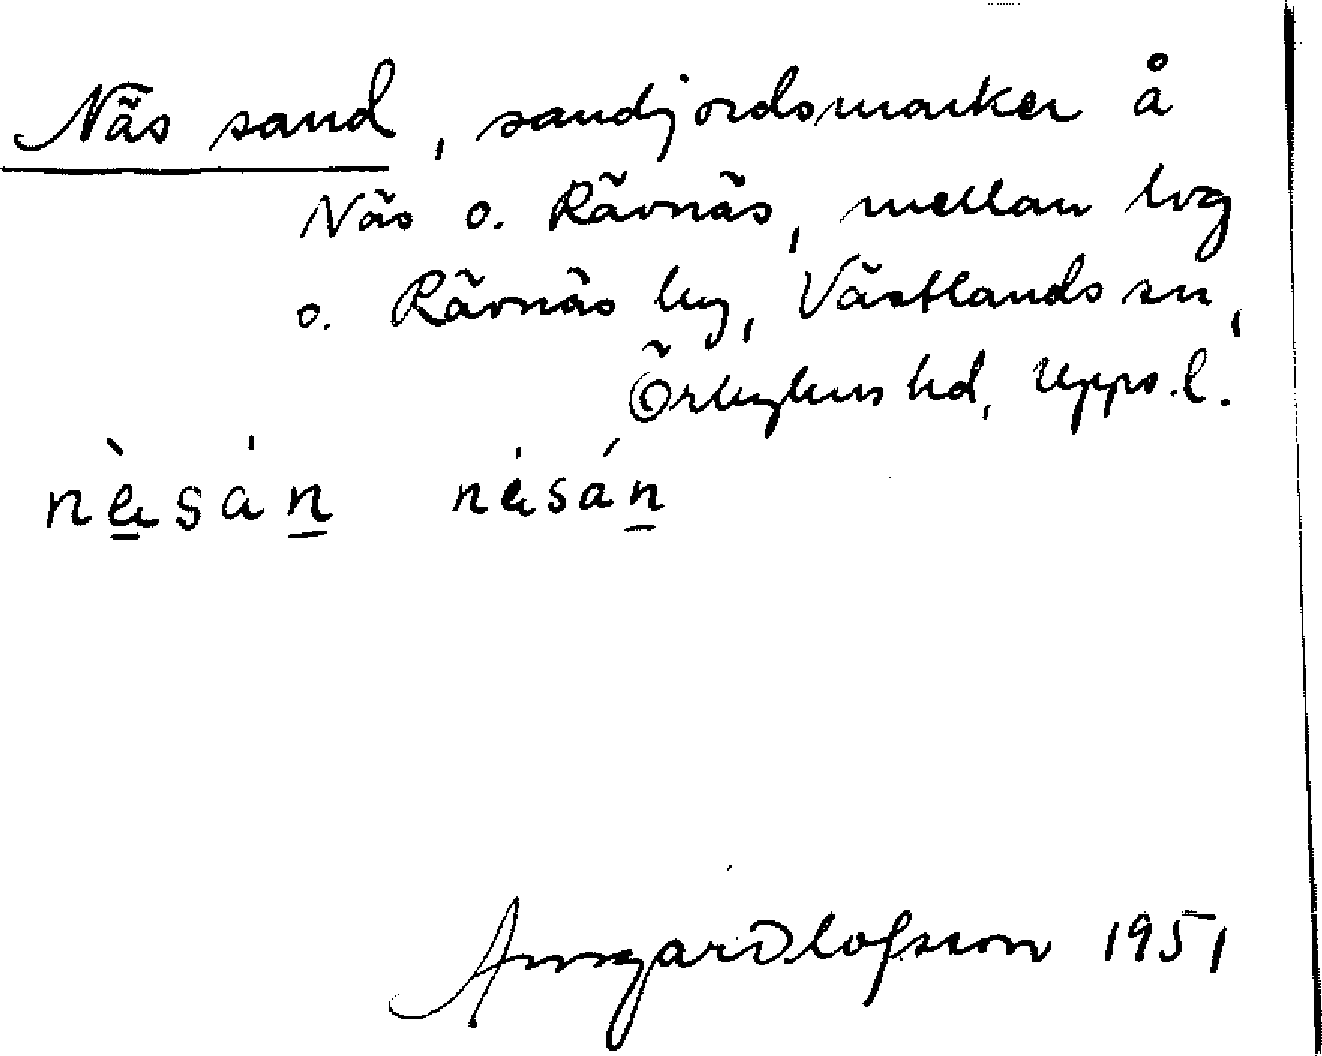 Näs sand, sandjordsmarker å
Näs o. Rävnäs, mellan lvg
o. Rävnäs by, Västlands sn,
Örbyhus hd, Upps. l.
nὲsán nέsán
Olofsson 1951